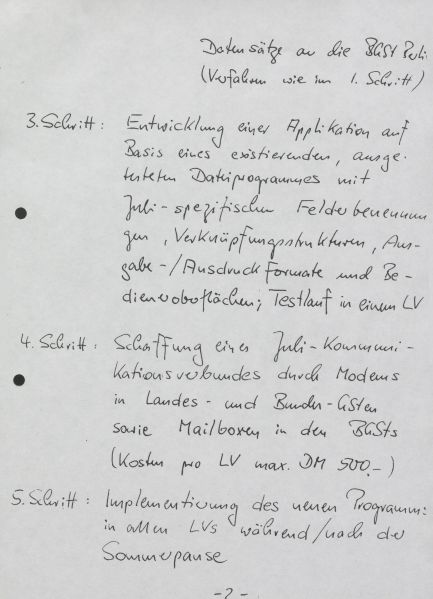 Datensätze an die BGSt Berli
(Verfahren wie im 1. Schritt)
3. Schritt: Entwicklung einer Applikation auf
Basis eines existierenden, ausge-
testeten Dateiprogrammes mit
Juli-spezifischen Felderbenennun
gen, Verknüpfungsstrukturen, Aus-
gabe-/Ausdruckformate und Be-
dieneroboflächen; Testlauf in einem LV
4. Schritt: Schaffung eines Juli-Kommuni-
kationsverbundes durch Modems
in Landes- und Bundes-GSten
sowie Mailboxen in den BGSts
(Kosten pro LV max. DM 500,-)
5. Schritt: Implementierung des neuen Programm:
in allen LVs während/nach der
Sommerpause
-2-